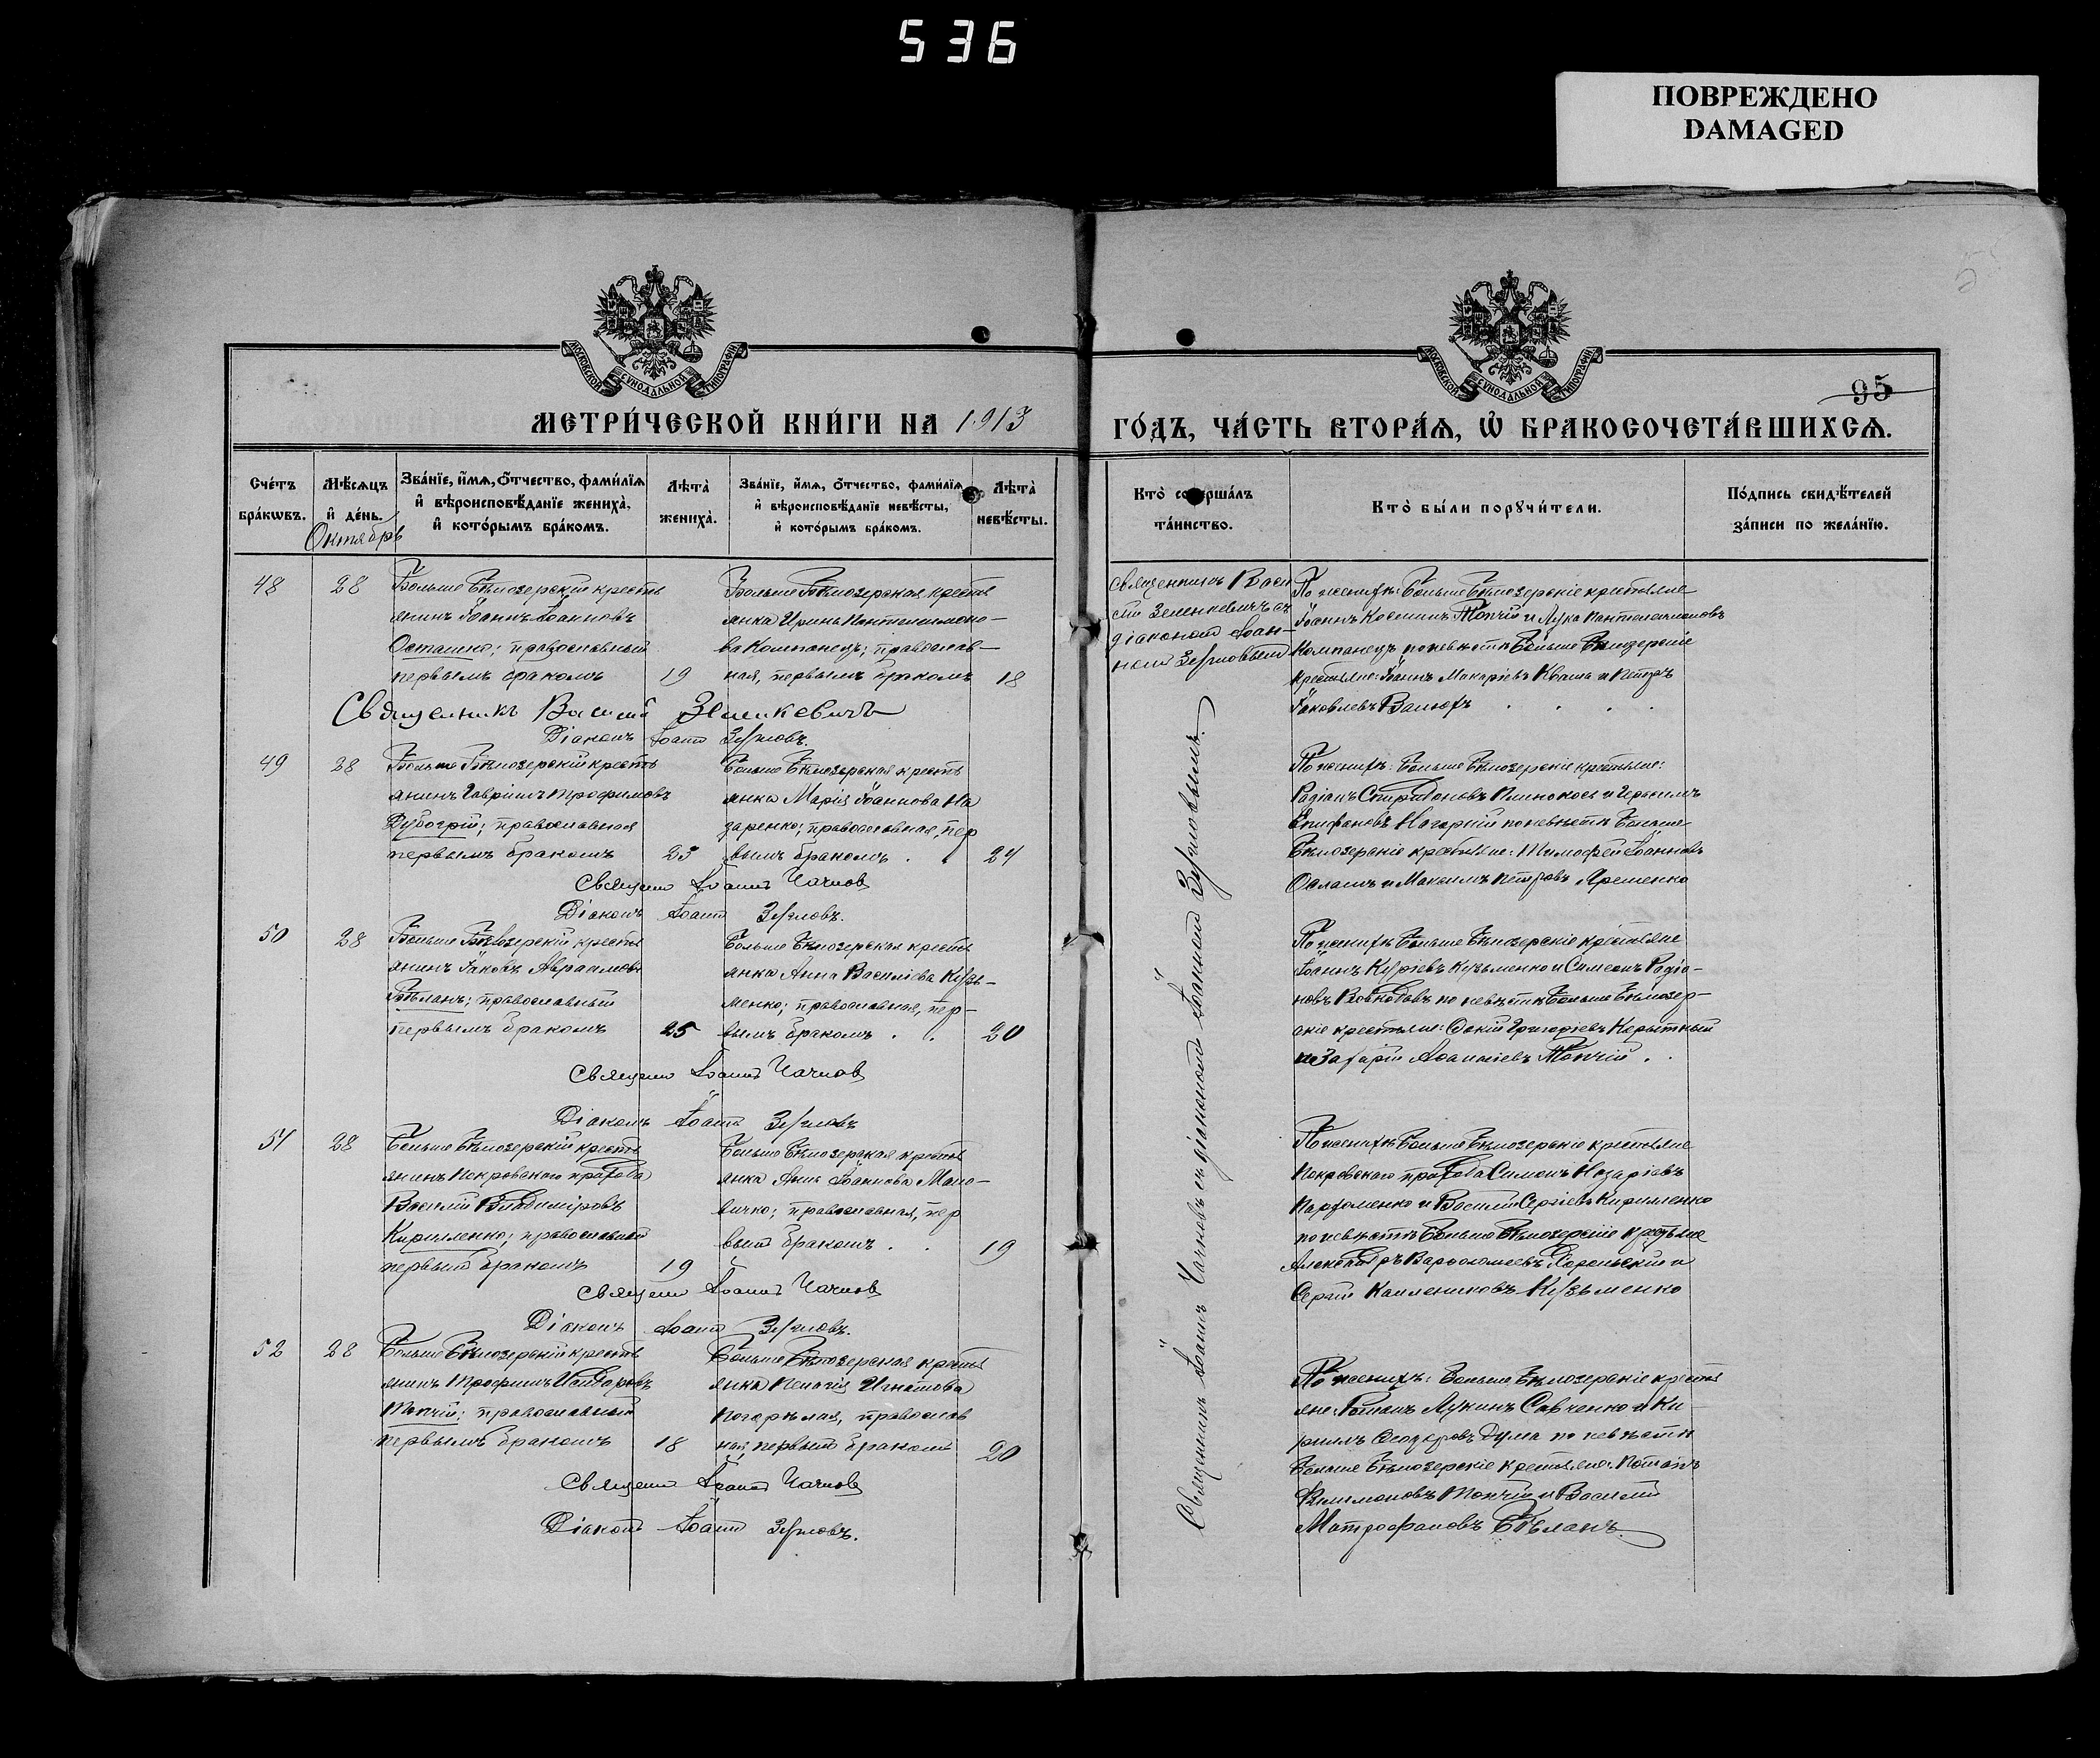 536
ПОВРЕЖДЕНО
DAMAGED
МОСКОВСКОЙ СѴНОДАЛЬНОЙ ТИПОГРАФІИ
МОСКОВСКОЙ СѴНОДАЛЬНОЙ ТИПОГРАФІИ
95
МЕТРИ́ЧЕСКОЙ КНИ́ГИ НА 1913
ГО́ДЪ, ЧА́СТЬ ВТОРА́Ѧ, Ѡ҆ БРАКОСОЧЕТА́ВШИХСѦ.
Сче́тъ
бра́кѡвъ.
Мѣ́сѧцъ
и҆ де́нь.
Октябрь
Зва́нїе, и҆́мѧ, ѻ҆́тчество, фами́лїѧ
и҆ вѣроисповѣ́данїе жениха̀,
и҆ кото́рымъ бра́комъ.
Лѣта̀
жениха̀.
Зва́нїе, и҆́мѧ, ѻ҆́тчество, фами́лїѧ
и҆ вѣроисповѣ́данїе невѣ́сты,
и҆ кото́рымъ бра́комъ.
Лѣта̀
невѣ́сты.
Кто̀ соверша́лъ
та́инство.
Кто̀ бы́ли порꙋчи́тели.
По́дпись свидѣ́телей
за́писи по жела́нїю.
48
28
Больше Бѣлозерскій кресть
янинъ Іоаннъ Іоанновъ
Осташко; православный
первымъ бракомъ 19
Больше Бѣлозерская кресть
янка Ирина Пантелеимоно-
ва Компанецъ; православ-
ная, первымъ бракомъ 18
Священникъ Васи
лій Зеленкевичъ съ
діакономъ Іоан-
номъ
По женихѣ: Больше Бѣлозерскіе крестьяне
Іоаннъ Косминъ Топчій и Лука Пантелеимоновъ
Компанецъ по невѣстѣ Больше Бѣлозерскіе
крестьяне: Іоаннъ Макаріевъ Кваша и Петръ
Іаковлевъ
Священникъ Василій
Діаконъ Іоаннъ
49
28
Больше Бѣлозерскій кресть
янинъ Гавріилъ Трофимовъ
православный
первымъ бракомъ 23
Больше Бѣлозерская кресть
янка Марія Іоаннова На
заренко; православная, пер
вымъ бракомъ . . 24
По женихѣ: Больше Бѣлозерскіе крестьяне:
Радіонъ Спиридоновъ
Епифановъ Нагорный по невѣстѣ Больше
Бѣлозерскіе крестьяне: Тимофей Іоанновъ
и Максимъ Петровъ Яременко
Священ Іоаннъ Чачковъ
Діаконъ Іоаннъ
50
28
Больше Бѣлозерскій кресть
янинъ Іаковъ Авраамовъ
Бѣланъ; православный
первымъ бракомъ 25
Больше Бѣлозерская кресть
янка Анна Василіева Кузь-
менко; православная, пер-
вымъ бракомъ . . 20
По женихѣ Больше Бѣлозерскіе крестьяне
Іоаннъ Кузьменко и Симеонъ Радіо-
новъ по невѣстѣ Больше Бѣлозер-
скіе крестьяне: Григоріевъ Корытный
и Захарій Аѳанасіевъ Топчій . .
Священ Іоаннъ Чачковъ
Діаконъ Іоаннъ
51
28
Больше Бѣлозерскій кресть
янинъ Покровскаго прихода
Василій Владиміровъ
Кириленко; православный
первымъ бракомъ 19
Больше Бѣлозерская кресть
янка Анна Іоаннова Мано-
вичко; православная, пер
вымъ бракомъ . . 19
По женихѣ Больше Бѣлозерскіе крестьяне
Покровскаго прихода Симонъ Назаріевъ
Парфоменко и Василій Сергіевъ Кириленко
по невѣстѣ Больше Бѣлозерскіе крестьяне
Александръ Варфоломеевъ и
Сергій Кузьменко
Священ Іоаннъ Чачковъ
Діаконъ Іоаннъ
52
28
Больше Бѣлозерскій кресть
янинъ Трофимъ
Топчій; православный
первымъ бракомъ 18
Больше Бѣлозерская кресть
янка Пелагія Игнатова
Погорѣлая, православ
ная, первымъ бракомъ 20
По женихѣ: Больше Бѣлозерскіе кресть
яне: Романъ Лукинъ Савченко и Ки-
риллъ Ѳеодоровъ Дума по невѣстѣ
Больше Бѣлозерскіе крестьяне: Потапъ
Филимоновъ Топчій и Василій
Митрофановъ Бѣланъ.
Священ Іоаннъ Чачковъ
Діаконъ Іоаннъ
Священникъ Іоаннъ Чачковъ съ діакономъ Іоанномъ